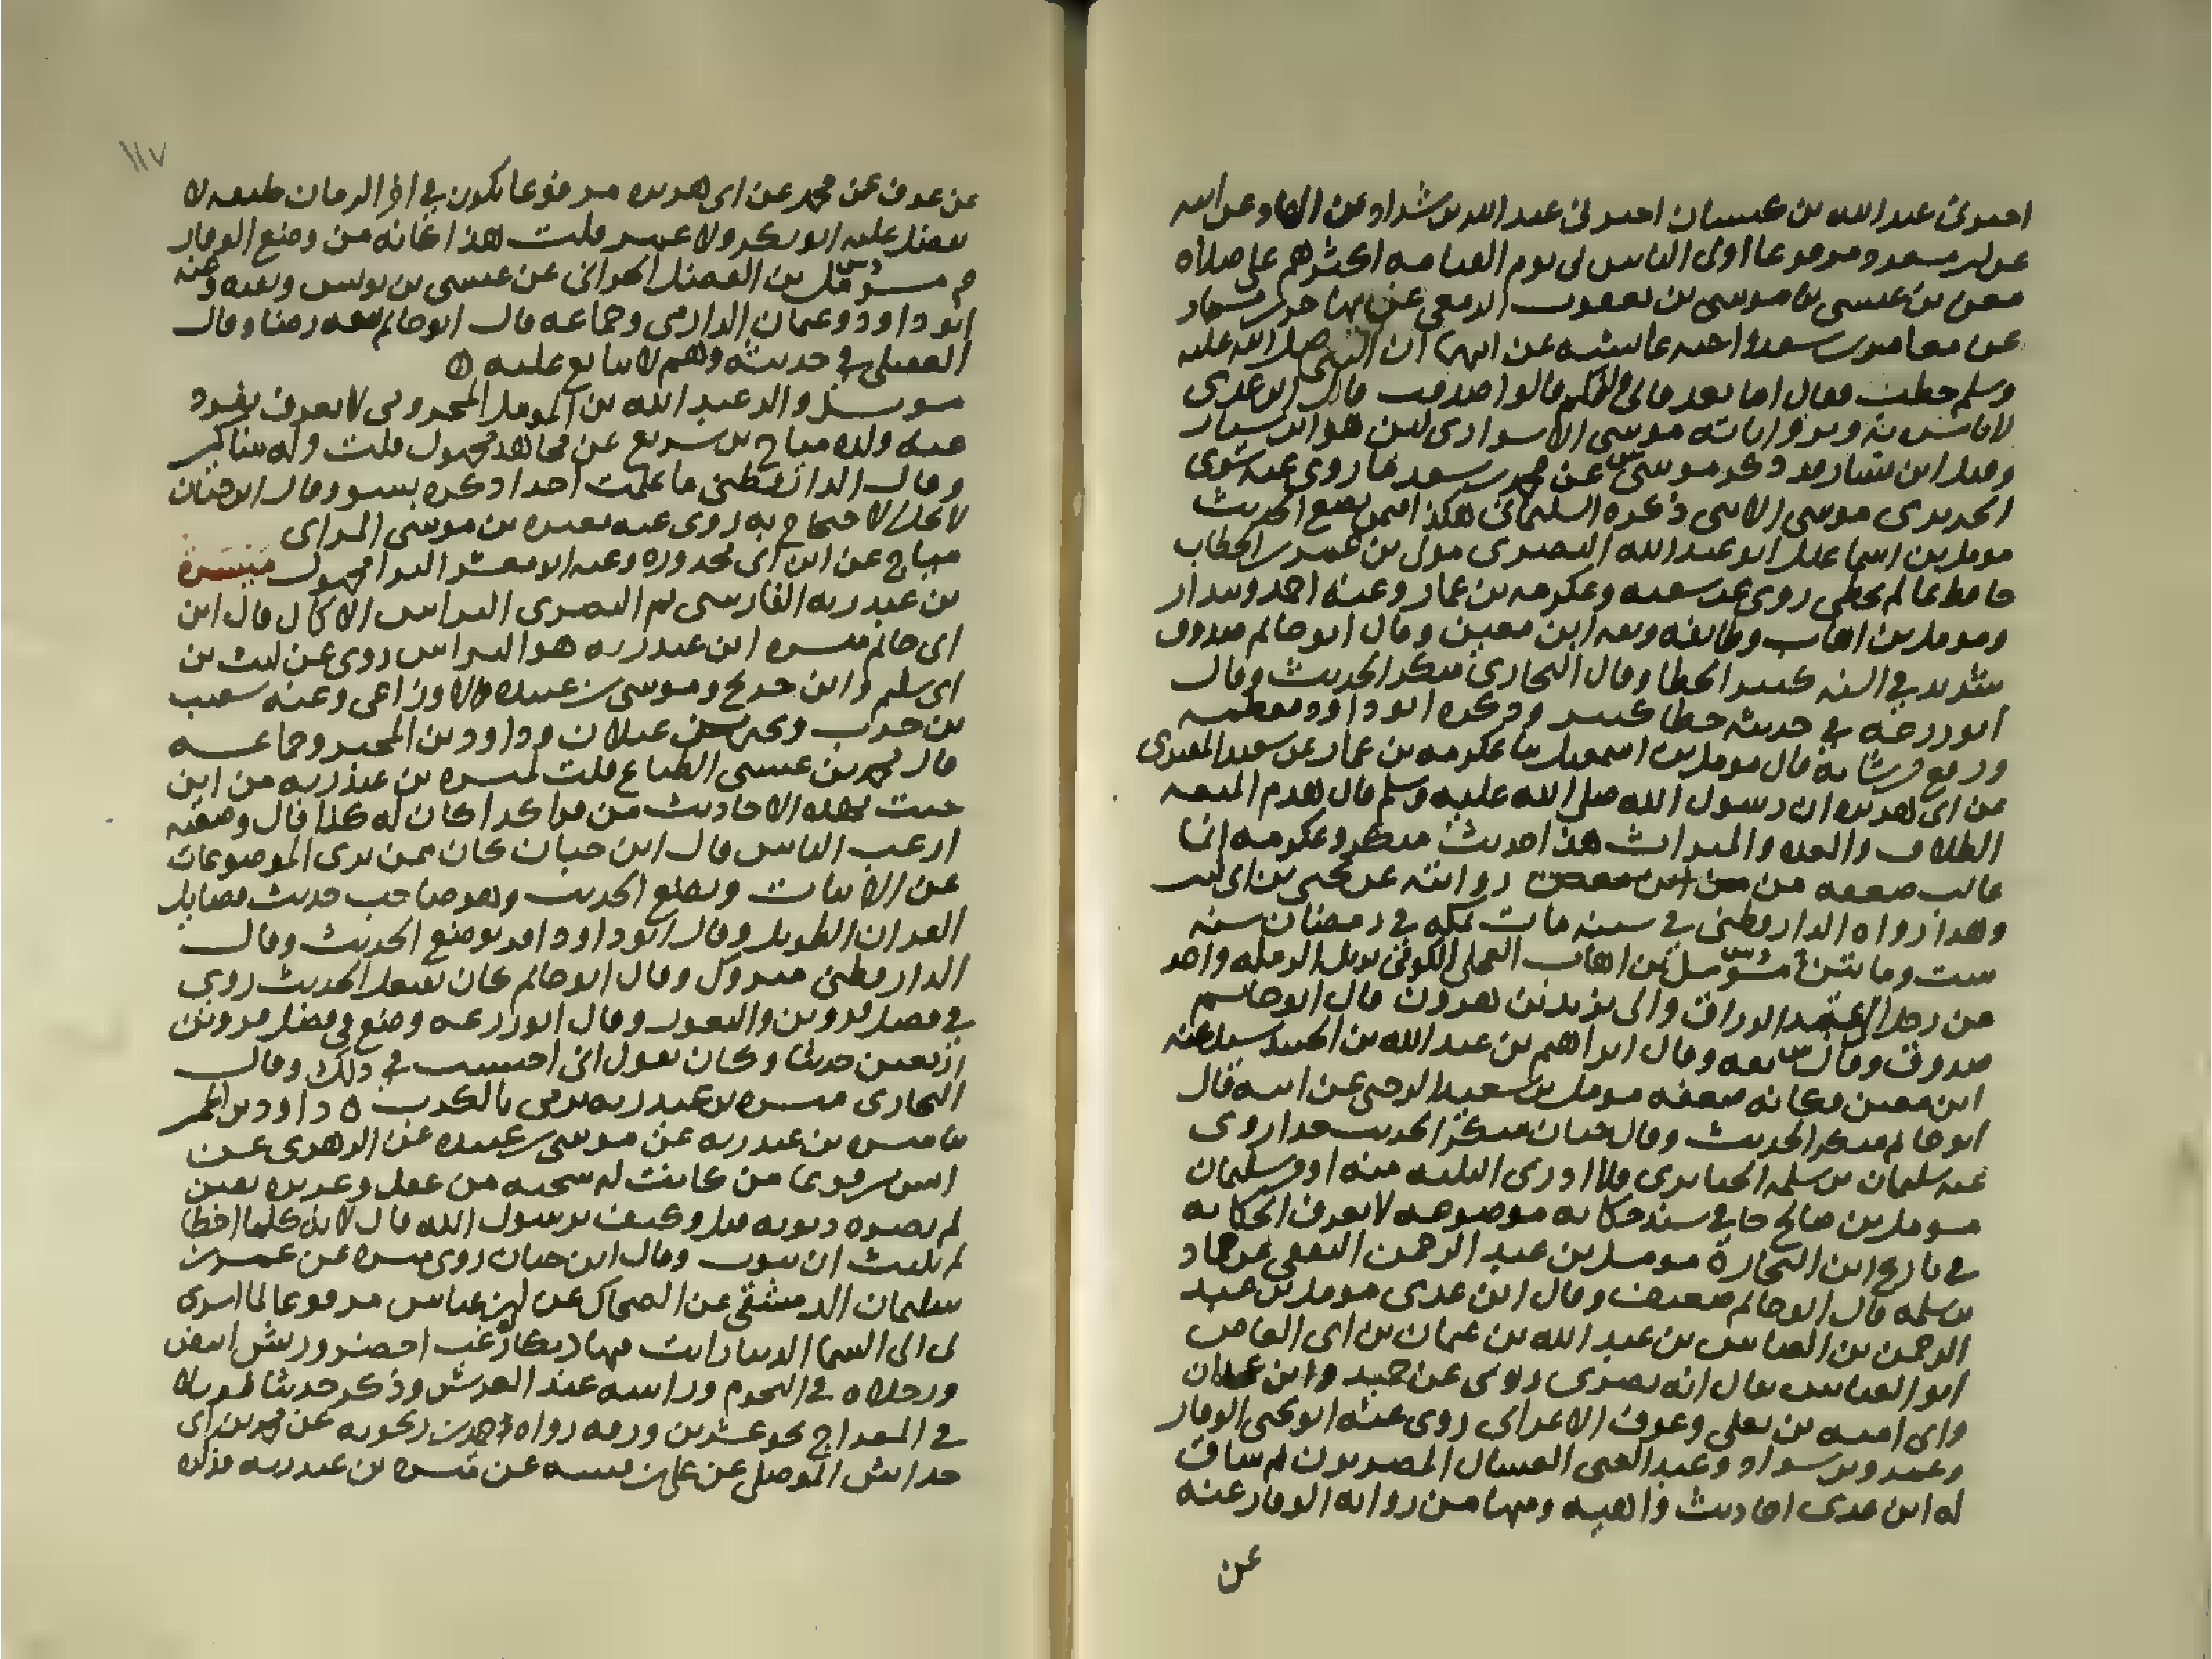 اخبرنى عبد الله بن كيسان اخبرنى عبد الله بن شداد بن الهاد عن ابيه
عن ابن مسعود مرفوعا اولى الناس بى يوم القيامه اكثرهم على صلاه
معن بن عيسى نا موسى بن يعقوب الزمعى عن
عن بنت سعد واخيه عائشه عن ابيها ان النبى صلى الله عليه
وسلم خطب فقال اما بعد فانى وليكم قالوا صدقت قال ابن عدى
لا باس به وبرواياته موسى الاسوارى لين هو ابن سيار
وقيل ابن يسار مر ذكر موسى عن محمد بن سعد ما روى عنه سوى
الجريرى موسى الابنى ذكره السليمانى هكذا فيمن يضع الحديث
مومل بن اسماعيل ابو عبد الله البصرى مولى بن عمر بن الخطاب
حافظ عالم يخطى روى عن شعبه وعكرمه بن عمار وعنه احمد وبندار
ومومل بن اهاب وطائفه وثقه ابن معين وقال ابو حاتم صدوق
شديد فى السنه كثير الخطا وقال البخارى منكر الحديث وقال
ابو زرعه فى حديثه خطا كثير وذكره ابو داود فعظمه
ورفع من شانه قال مومل بن اسمعيل نا عكرمه بن عمار عن سعيد المقبرى
عن ابى هريره ان رسول الله صلى الله عليه وسلم قال هدم المتعه
الطلاق والعده والميراث هذا حديث منكر وعكرمه انما
غالب ضعفه من روايته عن يحيى بن ابى كثير
وهذا رواه الدارقطنى فى سننه مات بمكه فى رمضان سنه
ست ومائتين مومل بن اهاب العجلى الكوفى نزيل الرمله واحد
من رحل الى عبد الرزاق والى يزيد بن هرون قال ابو حاتم
صدوق وقال س ثقه وقال ابراهيم بن عبد الله بن الجنيد سيل عنه
ابن معين فكانه ضعفه مومل بن سعيد الرحبى عن ابيه قال
ابو حاتم منكر الحديث وقال حبان منكر الحديث جدا روى
عنه سليمان بن سلمه الخبايرى فلا ادرى البليه منه او من سليمان
مومل بن صالح جا فى سند حكايه موضوعه لا يعرف الحكايه
فى تاريخ ابن النجار ه مومل بن عبد الرحمن الثقفى عن حماد
بن سلمه قال ابو حاتم ضعيف وقال ابن عدى مومل بن عبد
الرحمن بن العباس بن عبد الله بن عثمان بن ابى العاص
ابو العباس يقال انه بصرى روى عن حميد وابن عجلان
وابى اميه بن يعلى وعوف الاعرابى روى عنه ابو يحيى الوقار
وعمرو بن سواد وعبد الغنى العسال المصريون ثم ساق
له ابن عدى احاديث واهيه ومنها من روايه الوقار عنه
عن
١١٧
عن عوف عن محمد عن ابى هريره مرفوعا يكون فى اخر الزمان خليفه لا
يفضل عليه ابو بكر ولا عمر قلت هذا كانه من وضع الوقار
م دس مومل بن الفضل الحرانى عن عيسى بن يونس وبقيه وعنه
ابو داود وعثمان الدارمى وجماعه قال ابو حاتم ثقه رضا وقال
العقيلى فى حديثه وهم لا يتابع عليه ه
مومل والد عبد الله بن المومل المخزومى لا يعرف تفرد
عنه ولده مياح بن سريع عن مجاهد مجهول قلت وله مناكير
وقال الدارقطنى ما علمت احدا ذكره بسو وقال ابن حبان
لا يحل الاحتجاج به روى عنه مغيره بن موسى المراى
مياح عن ابن ابى محذوره وعنه ابو معشر البرا مجهول ميسره
بن عبد ربه الفارسى ثم البصرى التراس الاكال قال ابن
ابى حاتم ميسره ابن عبد ربه هو التراس روى عن ليث بن
ابى سليم وابن جريج وموسى بن عبيده والاوزاعى وعنه شعيب
بن حرب ويحيى بن غيلان وداود بن المحبر وجماعه
قال محمد بن عيسى الطباع قلت لميسره بن عبد ربه من اين
جيت بهذه الاحاديث من قرا كذا كان له كذا قال وضعته
ارغب الناس قال ابن حبان كان ممن يروى الموضوعات
عن الاثبات ويضع الحديث وهو صاحب حديث فضايل
القران الطويل وقال ابو داود اقر بوضع الحديث وقال
الدارقطنى متروك وقال ابو حاتم كان يفتعل الحديث روى
فى فضل قزوين والثغور وقال ابو زرعه وضع فى فضل قزوين
اربعين حديثا وكان يقول انى احتسب فى ذلك وقال
البخارى ميسره بن عبد ربه يرمى بالكذب ه داود بن المحبر
نا ميسره بن عبد ربه عن موسى بن عبيده عن الزهرى عن
انس مرفوعا من كانت له سجيه من عقل وغريزه يقين
لم تضره ذنوبه قيل وكيف يرسول الله قال لانه كلما اخطا
لم يلبث ان يتوب وقال ابن حبان روى ميسره عن عمر بن
سليمان الدمشقى عن الضحاك عن ابن عباس مرفوعا لما اسرى
بى الى السما الدنيا رايت فيها ديكا زغب اخضر وريش ابيض
ورجلاه فى التخوم وراسه عند العرش وذكر حديثا طويلا
فى المعراج نحو عشرين ورقه رواه حميد بن زنجويه عن محمد بن ابى
خداش الموصلى عن على بن قتيبه عن ميسره بن عبد ربه فذكره